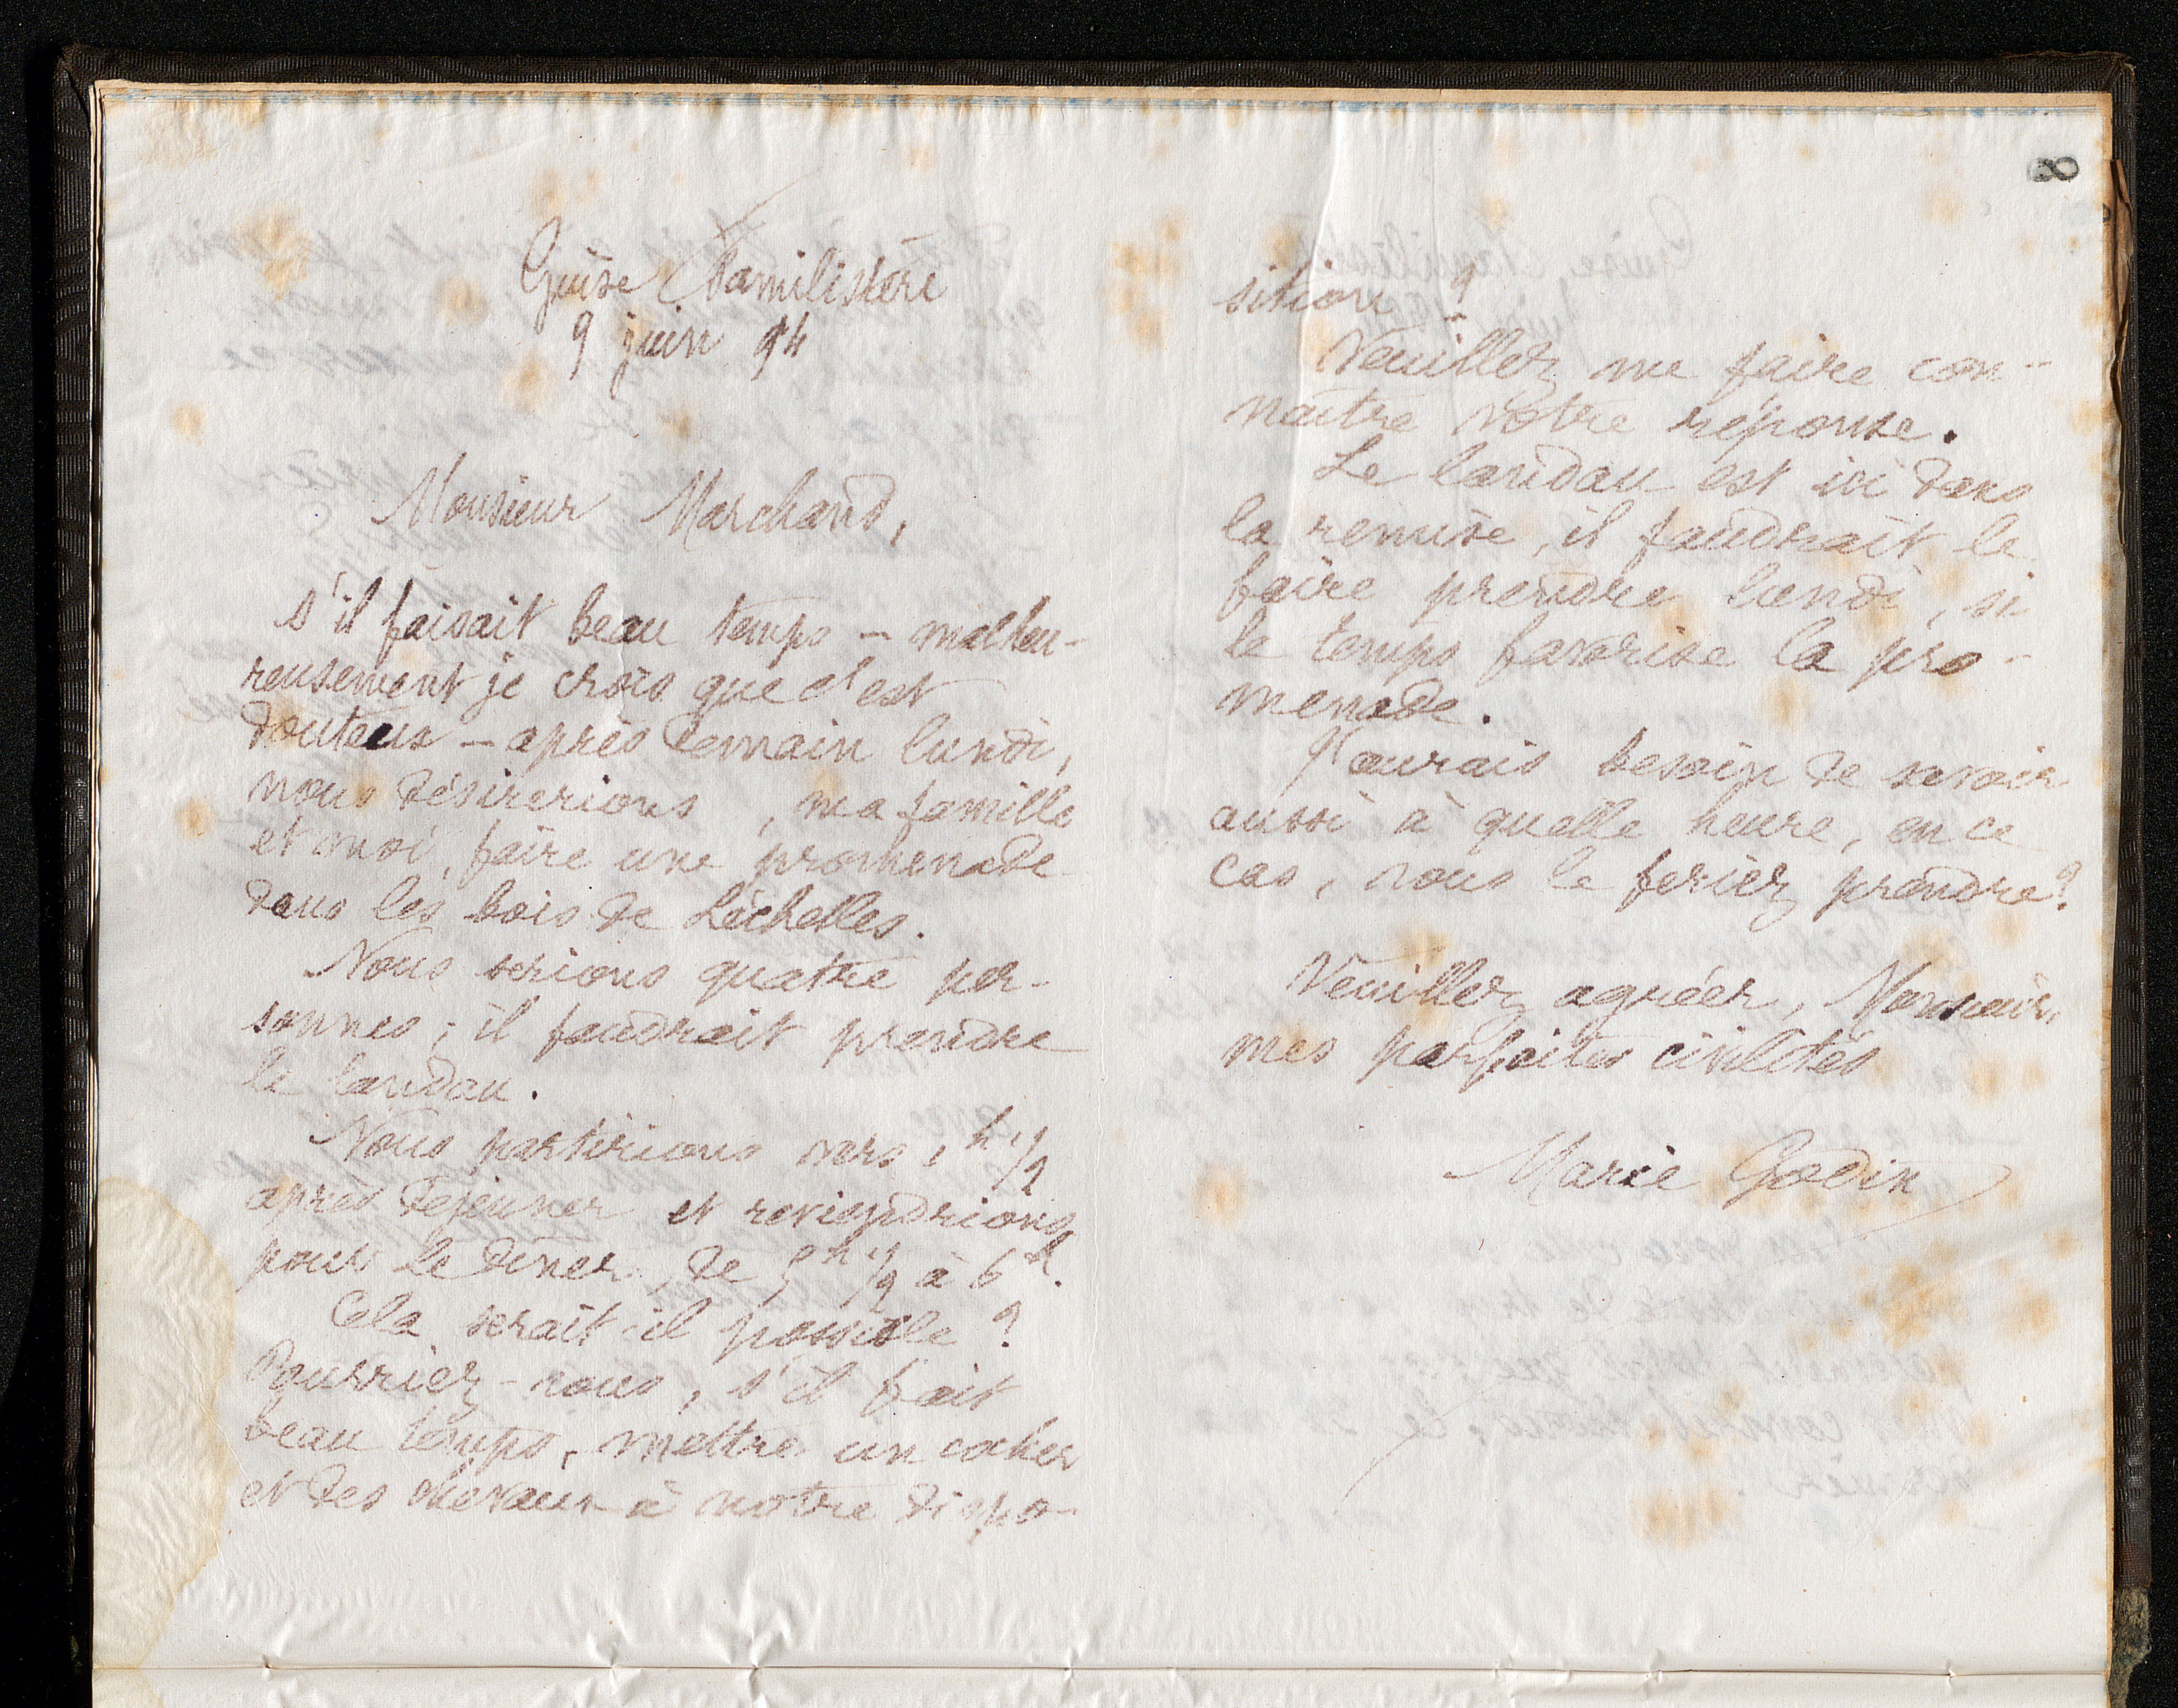 8
Guise Familistère
9 juin 94
Monsieur Marchand,
s'il faisait beau temps — malheu-
reusement je crois que c'est
douteux — après demain lundi,
nous désirerions, ma famille
et moi, faire une promenade
dans les bois de Léchelles.
Nous serions quatre per-
sonnes ; il faudrait prendre
le landau.
Nous partirions vers 1 h 1/2
après déjeuner et reviendrions
pour le dîner, de 5 h 1/2 à 6 h.
Cela serait-il possible ?
Pourriez-vous, s'il fait
beau temps, mettre un cocher
et des chevaux à notre dispo-
sition ?
Veuillez me faire con-
naître votre réponse.
Le landau est ici dans
la remise, il faudrait le
faire prendre lundi, si
le temps favorise la pro-
menade.
J'aurais besoin de savoir
aussi à quelle heure, en ce
cas, vous le feriez prendre ?
Veuillez agréer, Monsieur,
mes parfaites civilités
Marie Godin